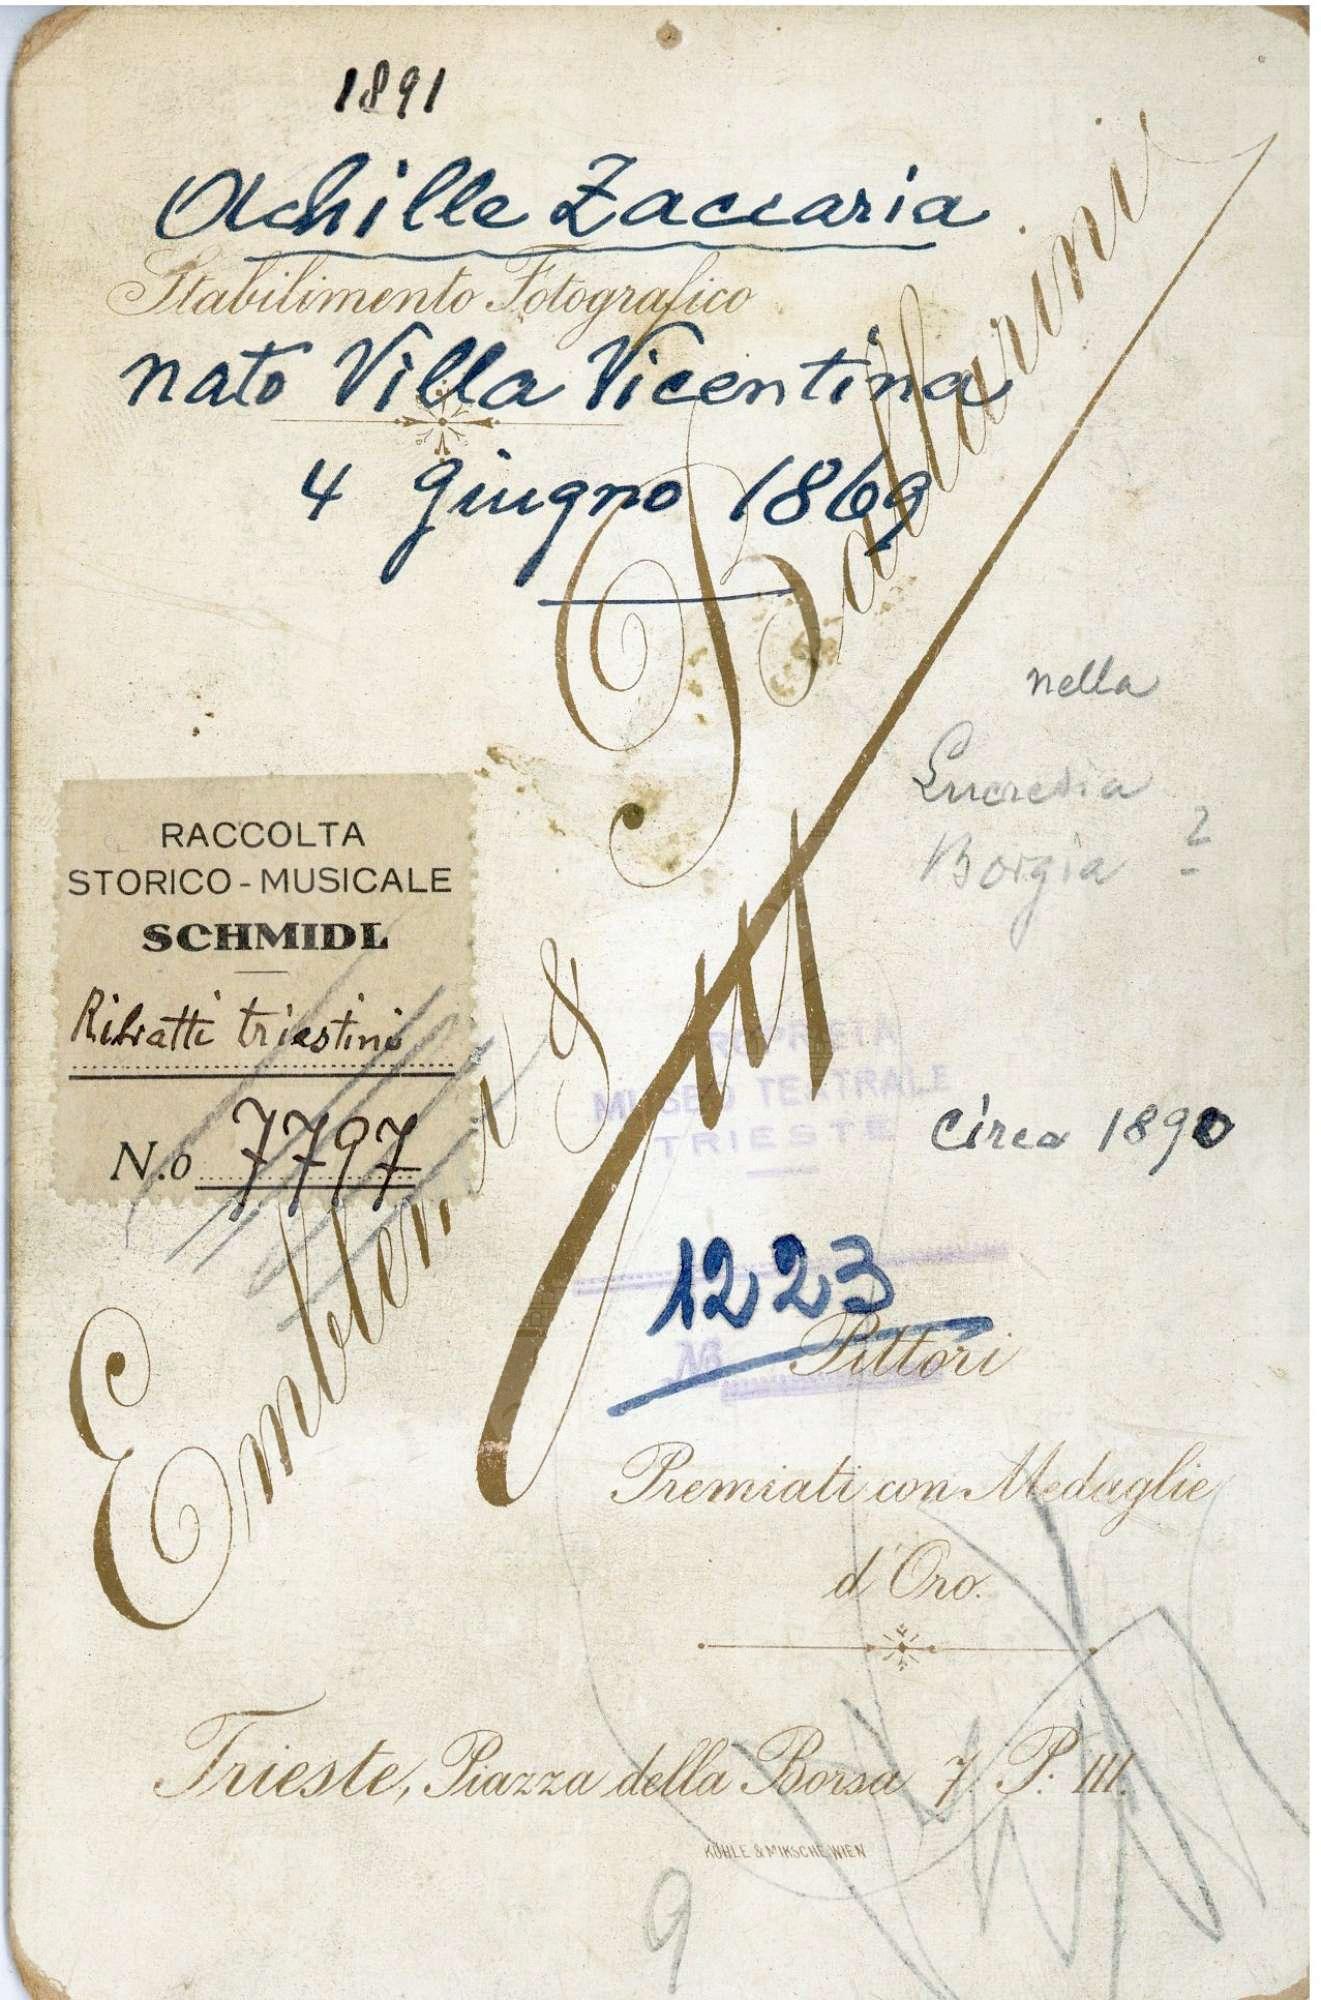 1891
Achille Zaccaria
Stabilimento Fotografico
nato Villa Vicentina
4 giugno 1869
Emblema & Ballarini
nella
Lucrezia
Borgia ?
RACCOLTA
STORICO-MUSICALE
SCHMIDL
Ritratti triestini
N.o 7797
PROPRIETÀ
MUSEO TEATRALE
TRIESTE
circa 1890
1223
No
Pittori
Premiati con Medaglie
d'Oro.
Trieste, Piazza della Borsa 7. P: III.
KÜHLE & MIKSCHE, WIEN
9